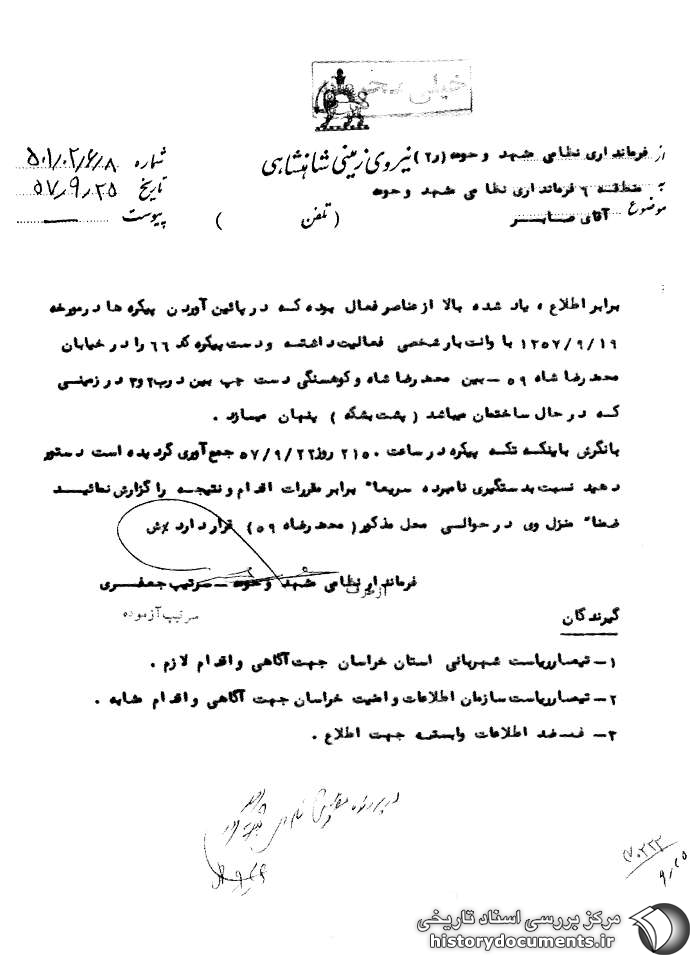 خیلی محرمانه
از فرمانداری نظامی مشهد و حومه (ر۲) نیروی زمینی شاهنشاهی شماره ۵۰۱/۰۲/۶/۸
به منطقه ۶ فرمانداری نظامی مشهد و حومه تاریخ ۵۷/۹/۲۵
موضوع آقای صابر (تلفن ) پیوست
برابر اطلاع، یاد شده بالا از عناصر فعال بوده که در پائین آوردن پیکره ها در مورخه
۱۳۵۷/۹/۱۹ با وانت بار شخصی فعالیت داشته و دست پیکره کد ۶۶ را در خیابان
محمد رضا شاه ۵۹ – بین محمد رضا شاه و کوهسنگی دست چپ بین درب ۲ و ۳ در زمینی
که در حال ساختمان میباشد (پشت بشکه) پنهان میسازد.
بانگرش باینکه تکه پیکره در ساعت ۲۱۵۰ روز ۵۷/۹/۲۲ جمع آوری گردیده است دستور
دهید نسبت بدستگیری نامبرده سریعا" برابر مقررات اقدام و نتیجه را گزارش نمائید
ضمنا" منزل وی در حوالی محل مذکور (محمد رضا شاه ۵۹) قرار دارد
فرماندار نظامی مشهد و حومه – سرتیپ جعفری
از طرف
سرتیپ آزموده
گیرندگان
۱– تیمسار ریاست شهربانی استان خراسان جهت آگاهی و اقدام لازم.
۲– تیمسار ریاست سازمان اطلاعات و امنیت خراسان جهت آگاهی و اقدام مشابه.
۳– ضد اطلاعات وابسته جهت اطلاع.
در پرونده
۹/۲۵
مرکز بررسی اسناد تاریخی
historydocuments.ir